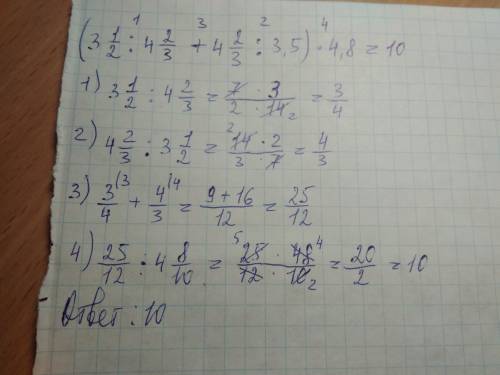 (3 1/2 : 4 2/3 + 4 2/3 : 3,5) · 4,8 = 10
1 3 2 4
1) 3 1/2 : 4 2/3 = 7 · 3 / 2 · 14 2 = 3/4
2) 4 2/3 : 3 1/2 = 2 14 · 2 / 3 · 7 = 4/3
3) 3/4 \3 + 4/3 \4 = 9 + 16 / 12 = 25/12
4) 25/12 : 4 8/10 = 5 25 · 48 4 / 12 · 10 2 = 20/2 = 10
Ответ : 10